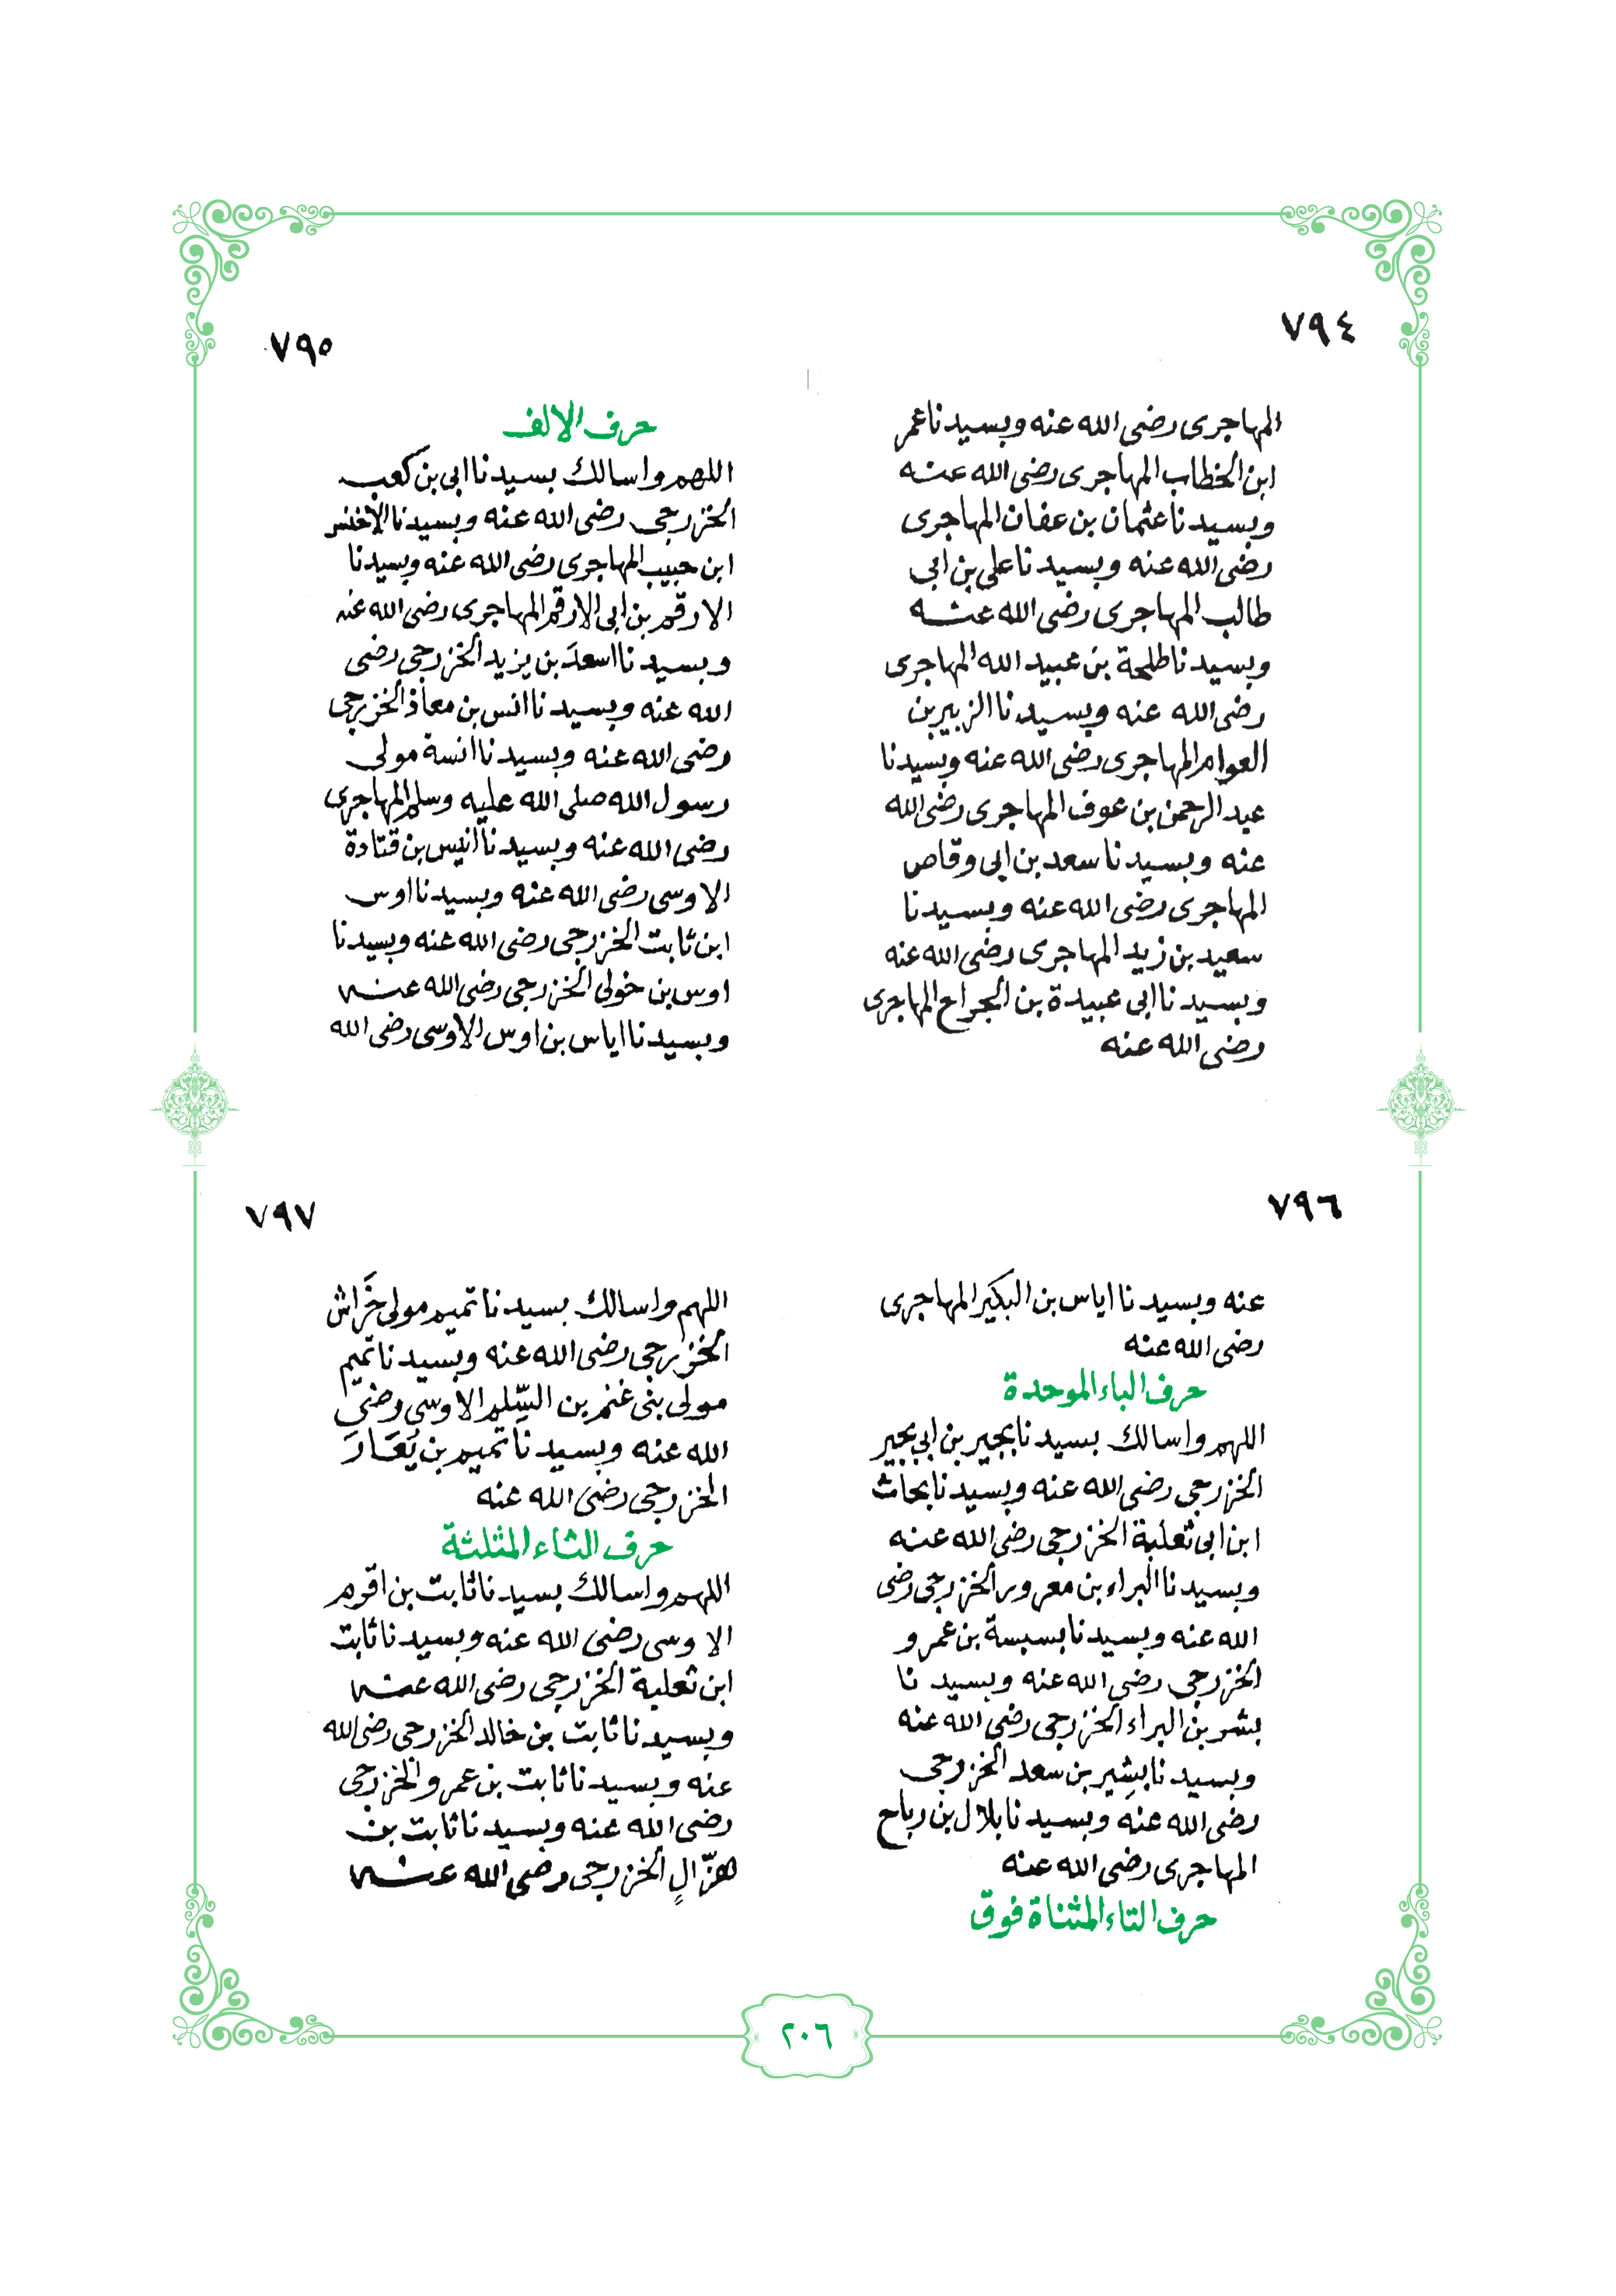 ٧٩٤
المهاجرى رضى الله عنه وبسيدنا عمر
ابن الخطاب المهاجرى رضى الله عنه
وبسيدنا عثمان بن عفان المهاجرى
رضى الله عنه وبسيدنا على بن ابى
طالب المهاجرى رضى الله عنه
وبسيدنا طلحة بن عبيد الله المهاجرى
رضى الله عنه وبسيدنا الزبير بن
العوام المهاجرى رضى الله عنه وبسيدنا
عبد الرحمن بن عوف المهاجرى رضى الله
عنه وبسيدنا سعد بن ابى وقاص
المهاجرى رضى الله عنه وبسيدنا
سعيد بن زيد المهاجرى رضى الله عنه
وبسيدنا ابى عبيدة بن الجراح المهاجرى
رضى الله عنه
٧٩٥
حرف الالف
اللهم واسالك بسيدنا ابى بن كعب
الخزرجى رضى الله عنه وبسيدنا الاخنس
ابن حبيب المهاجرى رضى الله عنه وبسيدنا
الارقم بن ابى الارقم المهاجرى رضى الله عنه
وبسيدنا اسعدَ بن يزيد الخزرجى رضى
الله عنه وبسيدنا انس بن معاذ الخزرجى
رضى الله عنه وبسيدنا انسة مولى
رسول الله صلى الله عليه وسلم المهاجرى
رضى الله عنه وبسيدنا انيس بن قتادة
الاوسى رضى الله عنه وبسيدنا اوس
ابن ثابت الخزرجى رضى الله عنه وبسيدنا
اوس بن خولى الخزرجى رضى الله عنه
وبسيدنا اياس بن اوس الاوسى رضى الله
٧٩٦
عنه وبسيدنا اياس بن البكير المهاجرى
رضى الله عنه
حرف الباء الموحدة
اللهم واسالك بسيدنا بجير بن ابى بجير
الخزرجى رضى الله عنه وبسيدنا بحاث
ابن ابى ثعلبة الخزرجى رضى الله عنه
وبسيدنا البراء بن معرور الخزرجى رضى
الله عنه وبسيدنا بسبسة بن عمرو
الخزرجى رضى الله عنه وبسيد نا
بشر بن البراء الخزرجى رضى الله عنه
وبسيدنا بشير بن سعد الخزرجى
رضى الله عنه وبسيدنا بلال بن رباح
المهاجرى رضى الله عنه
حرف التاء المثناة فوق
٧٩٧
اللهم واسالك بسيدنا تميم مولى خَراش
الخزرجى رضى الله عنه وبسيدنا تميم
مولى بنى غنم بن السّلم الاوسى رضى
الله عنه وبسيدنا تميم بن يُعَارَ
الخزرجى رضى الله عنه
حرف الثاء المثلثة
اللهم واسالك بسيدنا ثابت بن اقوم
الاوسى رضى الله عنه وبسيدنا ثابت
ابن ثعلبة الخزرجى رضى الله عنه
وبسيدنا ثابت بن خالد الخزرجى رضى الله
عنه وبسيدنا ثابت بن عمرو الخزرجى
رضى الله عنه وبسيدنا ثابت بن
هزّالٍ الخزرجى رضى الله عنه
٢٠٦